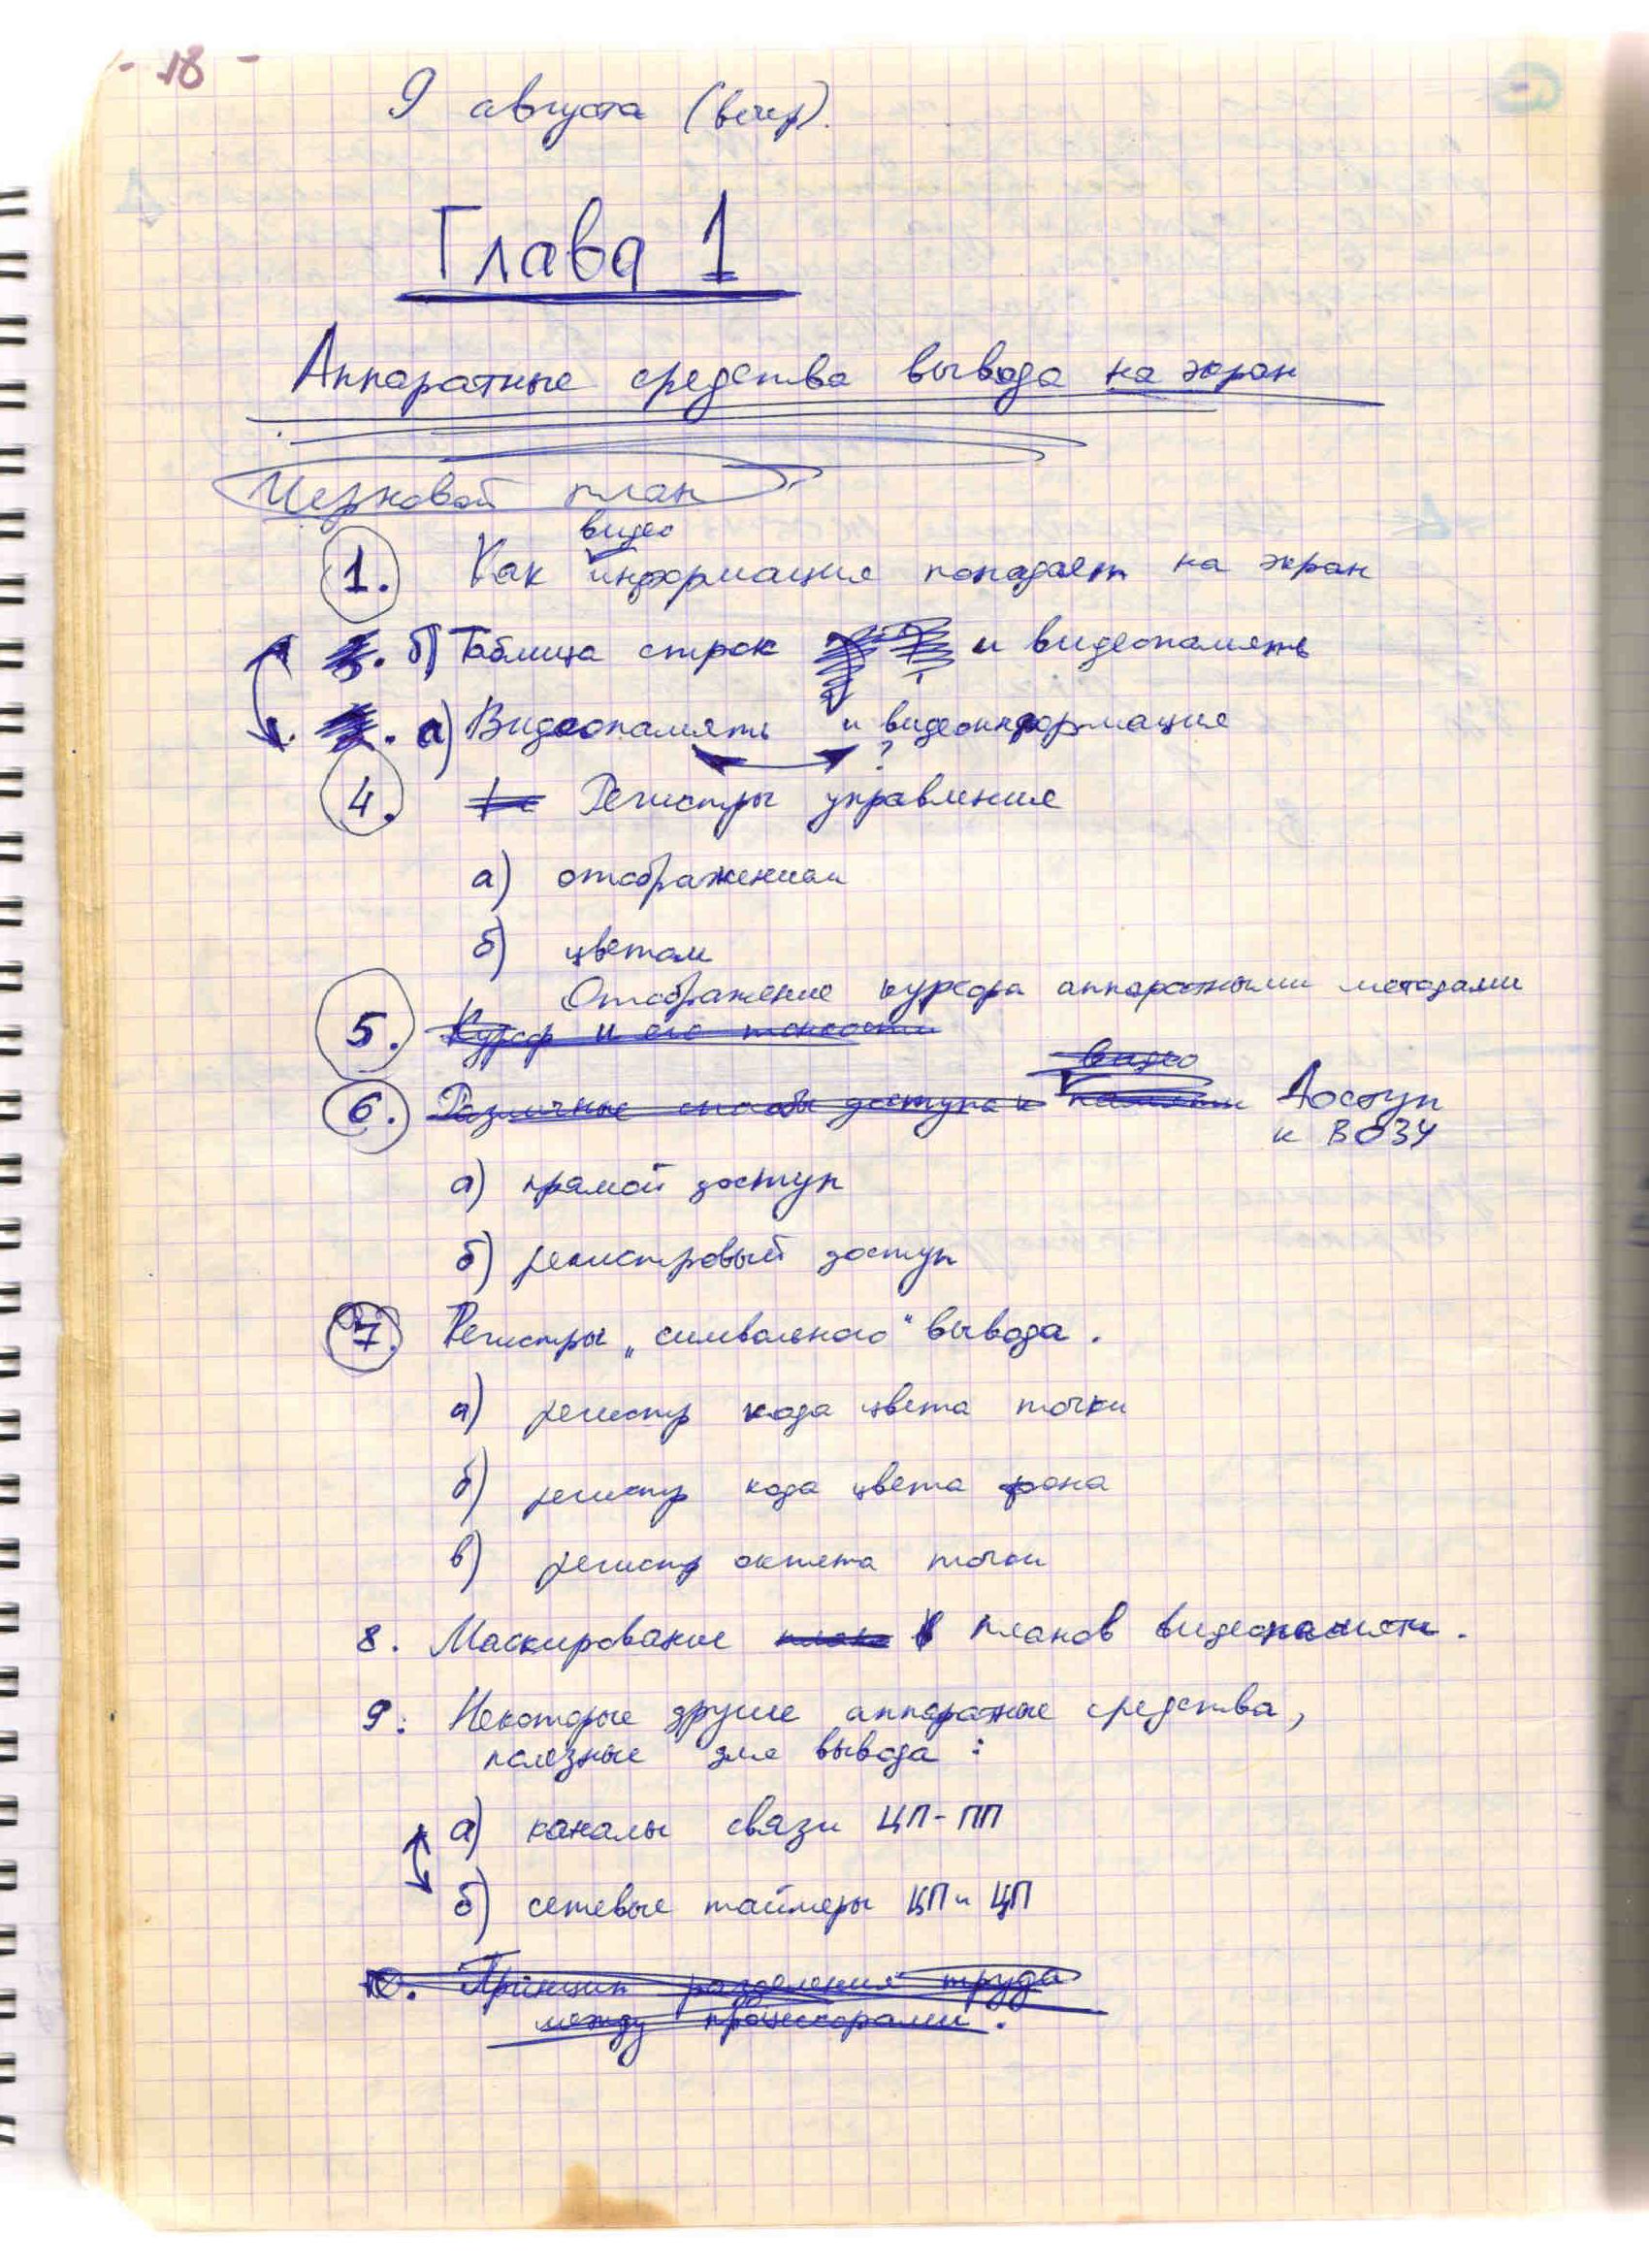 - 18 -
9 августа (вечер).
Глава 1
Аппаратные средства вывода на экран
Черновой план
видео
1. Как информация попадает на экран
б) Таблица строк и видеопамять
а) Видеопамять и видеоинформация
?
4. Регистры управления
а) отображением
б) цветом
Отображение курсора аппаратными методами
5. Курсор и его тонкости
видео
6. Различные способы доступа к памяти Доступ
к ВОЗУ
а) прямой доступ
б) регистровый доступ
7. Регистры „символьного" вывода.
а) регистр кода цвета точки
б) регистр кода цвета фона
в) регистр октета точки
8. Маскирование плано планов видеопамяти.
9. Некоторые другие аппаратные средства,
полезные для вывода :
а) каналы связи ЦП-ПП
б) сетевые таймеры ЦП и ЦП
10. Принцип разделения труда
между процессорами.